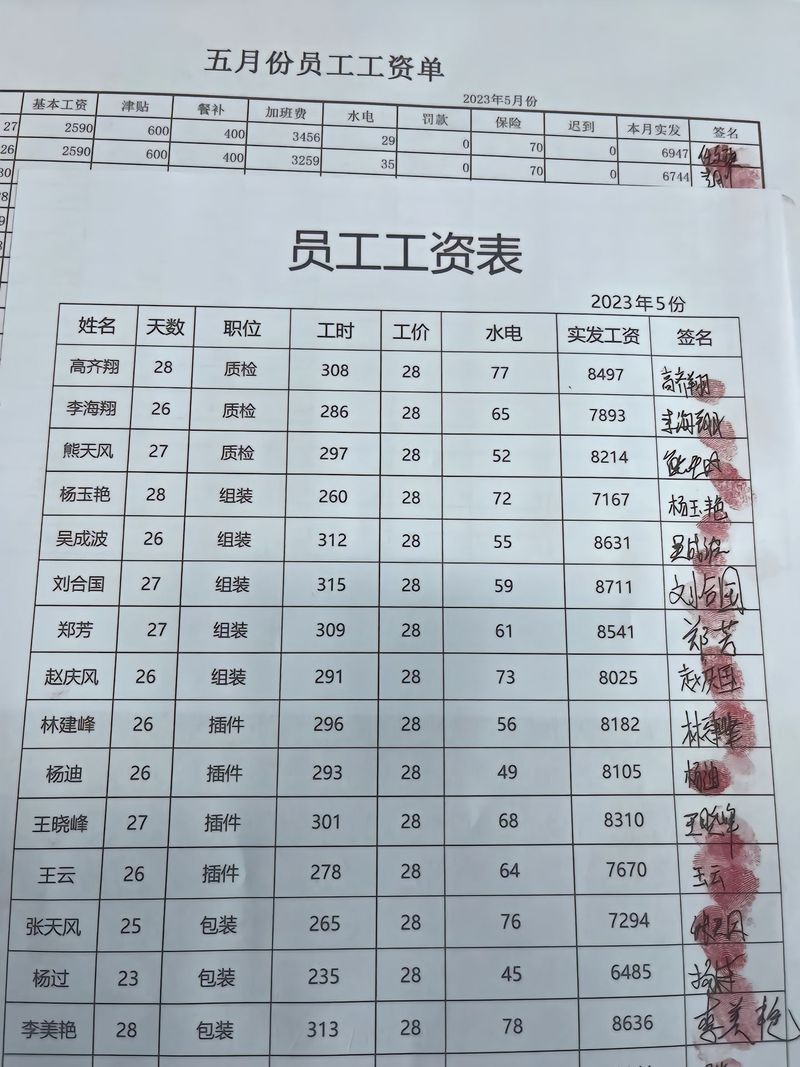 五月份员工工资单
2023年5月份
基本工资 津贴 餐补 加班费 水电 罚款 保险 迟到 本月实发 签名
27 2590 600 400 3456 29 0 70 0 6947
26 2590 600 400 3259 35 0 70 0 6744
员工工资表
2023年5份
姓名 天数 职位 工时 工价 水电 实发工资 签名
高齐翔 28 质检 308 28 77 8497 高齐翔
李海翔 26 质检 286 28 65 7893 李海翔
熊天风 27 质检 297 28 52 8214
杨玉艳 28 组装 260 28 72 7167 杨玉艳
吴成波 26 组装 312 28 55 8631 吴成波
刘合国 27 组装 315 28 59 8711 刘合国
郑芳 27 组装 309 28 61 8541 郑芳
赵庆风 26 组装 291 28 73 8025
林建峰 26 插件 296 28 56 8182 林建峰
杨迪 26 插件 293 28 49 8105 杨迪
王晓峰 27 插件 301 28 68 8310 王晓峰
王云 26 插件 278 28 64 7670 王云
张天风 25 包装 265 28 76 7294
杨过 23 包装 235 28 45 6485
李美艳 28 包装 313 28 78 8636 李美艳